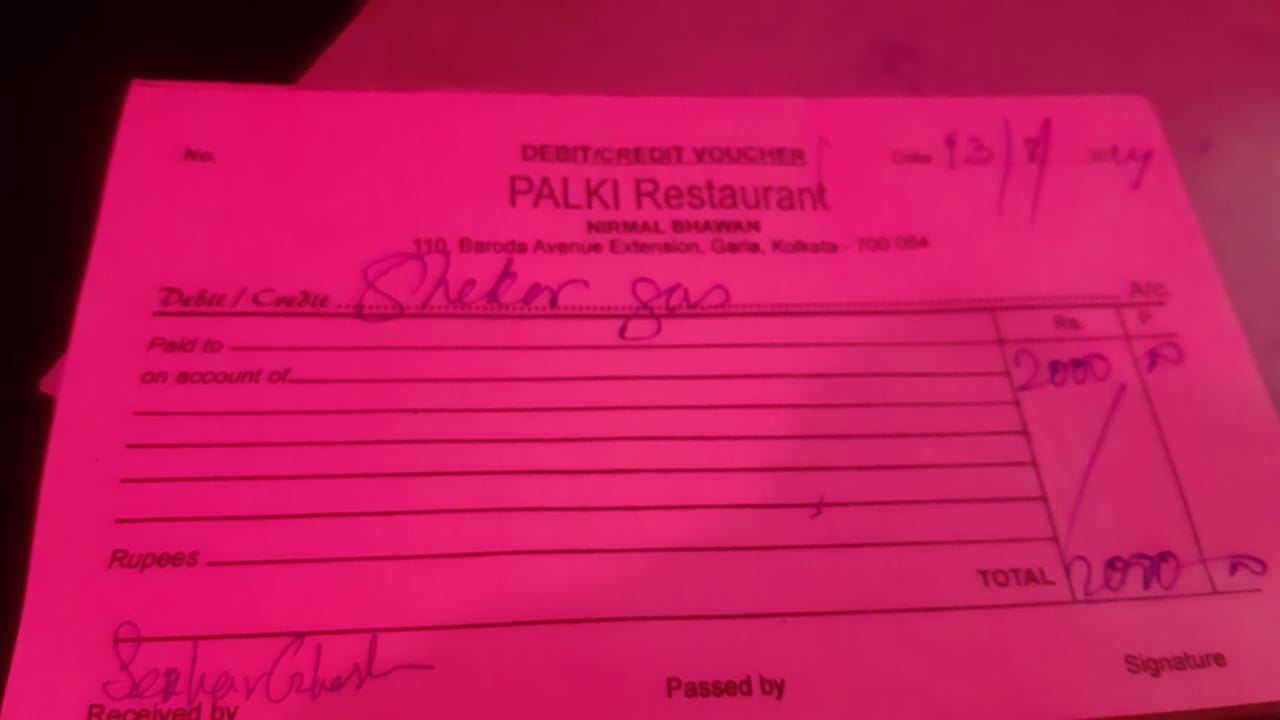 No. DEBIT/CREDIT VOUCHER Date 13/8
PALKI Restaurant
NIRMAL BHAWAN
110, Baroda Avenue Extension, Garia, Kolkata - 700 084
Debit / Credit Shekar gas A/c.
Rs. P.
Paid to
on account of 2000 00
Rupees
TOTAL 2000 00
Sekhar Ghosh
Received by Passed by Signature